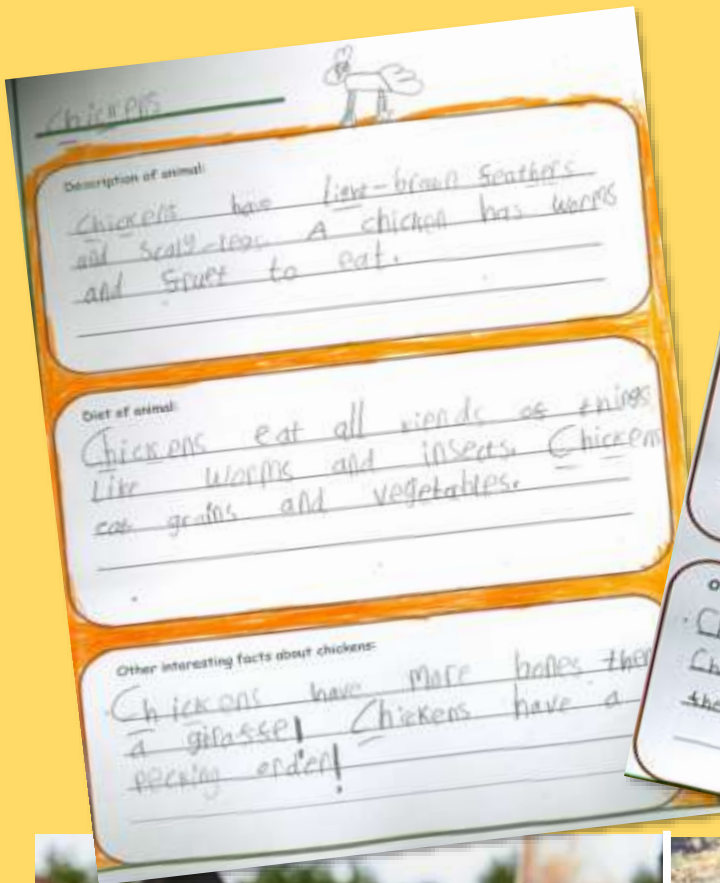 Chickens
Description of animal:
Chickens have light-brown feathers
and scaly legs. A chicken has worms
and fruet to eat.
Diet of animal:
Chickens eat all kiends of things
like worms and insects. Chickens
eat grains and vegetables.
Other interesting facts about chickens:
Chickens have more bones then
a giraffe! Chickens have a
pecking order!